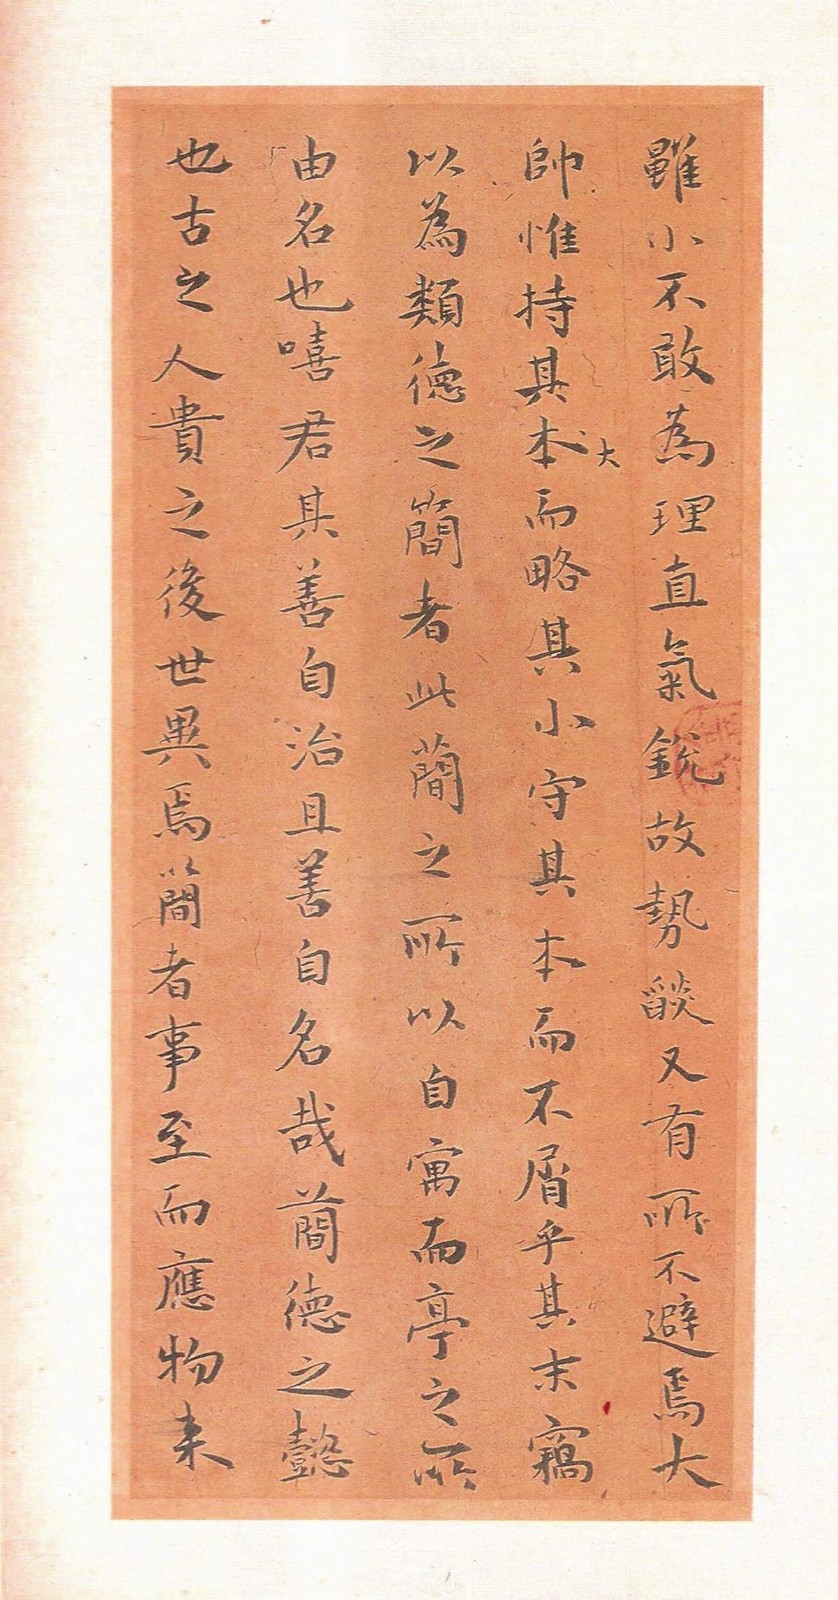 雖小不敢為理直氣銳故勢燄又有所不避焉大
帥惟持其本大而略其小守其本而不屑乎其末竊
以為類德之簡者此簡之所以自寓而亭之所
由名也嘻君其善自治且善自名哉簡德之懿
也古之人貴之後世異焉簡者事至而應物來